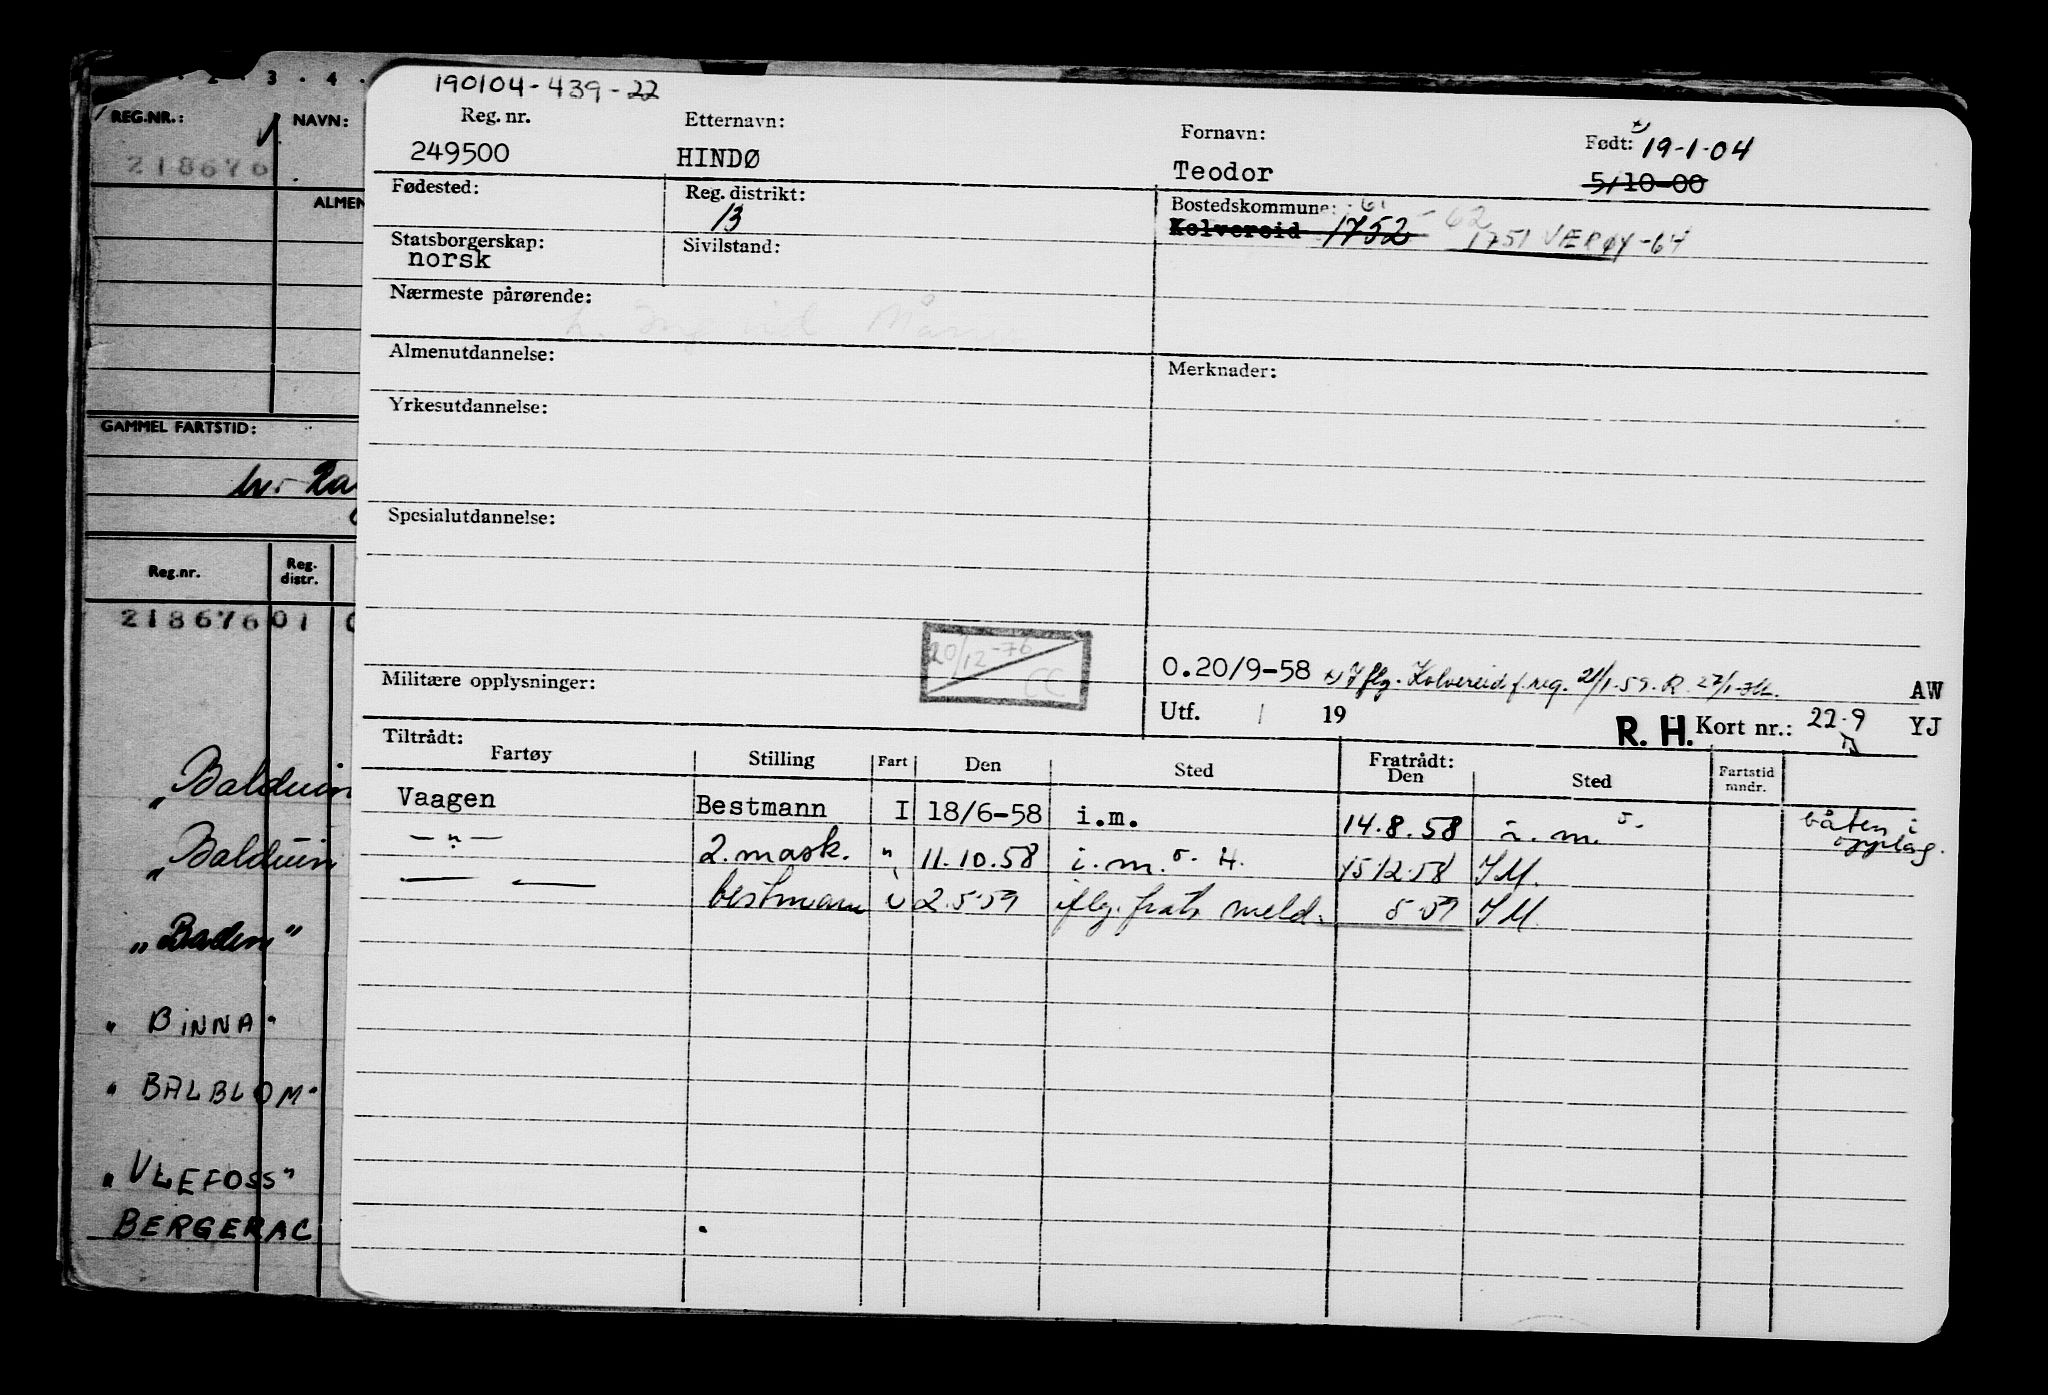 2 . 3 . 4 .
REG.NR.:
NAVN:
218676
ALMEN
GAMMEL FARTSTID:
Reg.nr.
Reg. distr.
21867601
"Balduin
"Balduin
"Baden"
"BINNA"
"BALBLOM"
"ULEFOSS"
BERGERAC
190104-439-22
Reg. nr.
249500
Etternavn:
HINDØ
Fornavn:
Teodor
Født: 19-1-04
5/10-00
Fødested:
Reg. distrikt:
13
Bostedskommune:
Kolvereid 1752 - 62
1751 VÆRØY-64
Statsborgerskap:
norsk
Sivilstand:
Nærmeste pårørende:
Almenutdannelse:
Merknader:
Yrkesutdannelse:
Spesialutdannelse:
20/12-76
CC
Militære opplysninger:
0.20/9-58 x) Iflg. Kolvereid f.reg. 21/1.59. R.
AW
Utf. / 19
R. H. Kort nr.: 22.9
YJ
Tiltrådt:
Fartøy Stilling Fart Den Sted
Fratrådt:
Den Sted
Fartstid mndr.
Vaagen Bestmann I 18/6-58 i.m. 14.8.58 båten i opplag.
— " — 2. mask. " 11.10.58 i.m. 15.12.58 IM.
bestmann 2.5.59 iflg. fratr. meld. 5.59 IM.